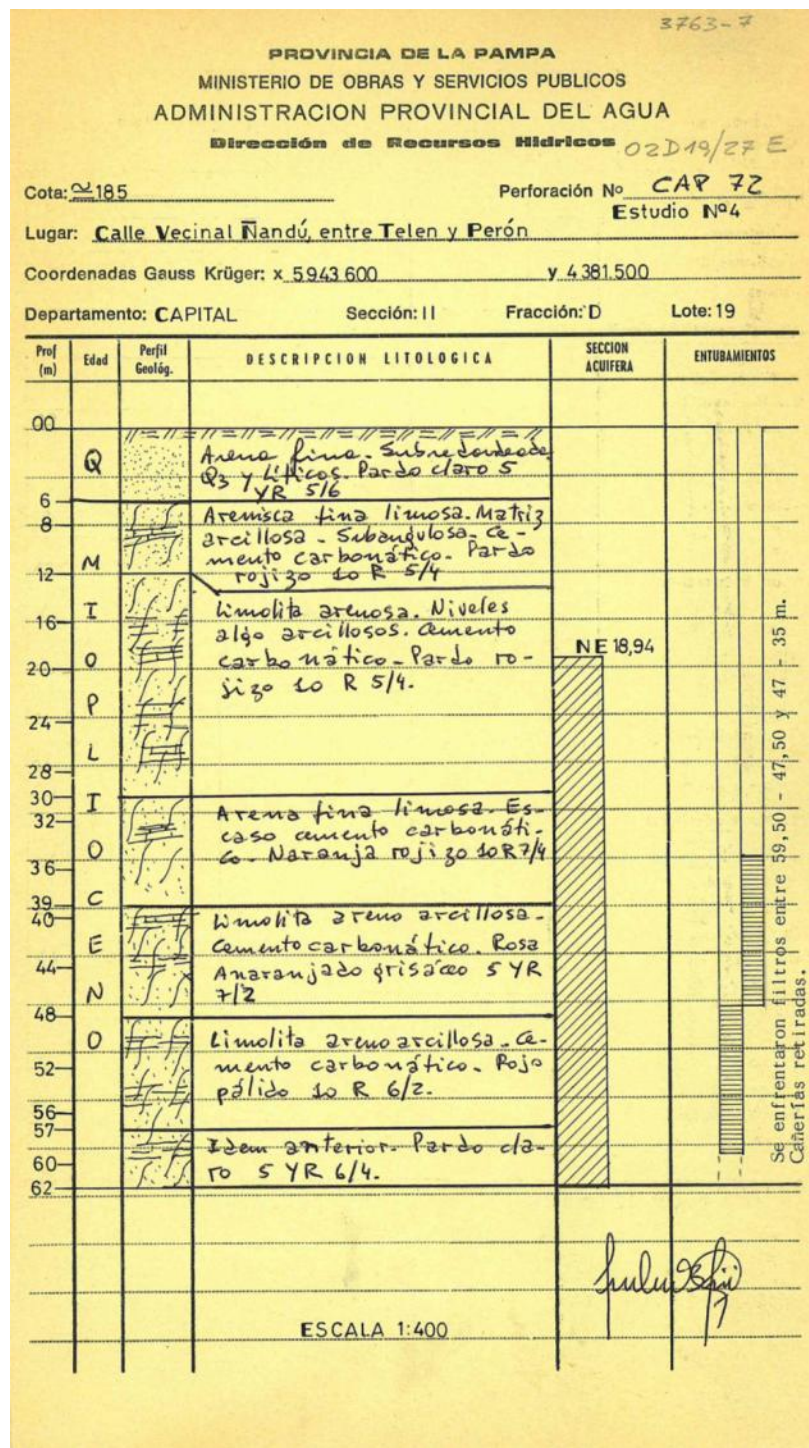 3763-7
PROVINCIA DE LA PAMPA
MINISTERIO DE OBRAS Y SERVICIOS PUBLICOS
ADMINISTRACION PROVINCIAL DEL AGUA
Dirección de Recursos Hídricos
02D19/27 E
Cota: ≃185 Perforación Nº CAP 72
Estudio Nº4
Lugar: Calle Vecinal Ñandú, entre Telen y Perón
Coordenadas Gauss Krüger: x 5943.600 y 4381.500
Departamento: CAPITAL Sección: II Fracción: D Lote: 19
Prof (m) Edad Perfil Geológ. DESCRIPCION LITOLOGICA SECCION ACUIFERA ENTUBAMIENTOS
00
Q
Arena fina. Subredondeada
Q3 y Líticos. Pardo claro 5
YR 5/6
6
8
12
MIOPLIOCENO
Arenisca fina limosa. Matriz
arcillosa - Subangulosa. Ce-
mento carbonático. Pardo
rojizo 10 R 5/4
16
20
24
28
Limolita arenosa. Niveles
algo arcillosos. Cemento
carbonático - Pardo ro-
jizo 10 R 5/4.
NE 18,94
30
32
36
Arena fina limosa. Es-
caso cemento carbonáti-
co. Naranja rojizo 10R7/4
39
40
44
Limolita areno arcillosa.
Cemento carbonático. Rosa
Anaranjado grisáceo 5 YR
7/2
48
52
56
Limolita areno arcillosa. Ce-
mento carbonático. Rojo
pálido 10 R 6/2.
57
60
62
Idem anterior. Pardo cla-
ro 5 YR 6/4.
Se enfrentaron filtros entre 59,50 - 47,50 y 47 - 35 m.
Cañerías retiradas.
ESCALA 1:400